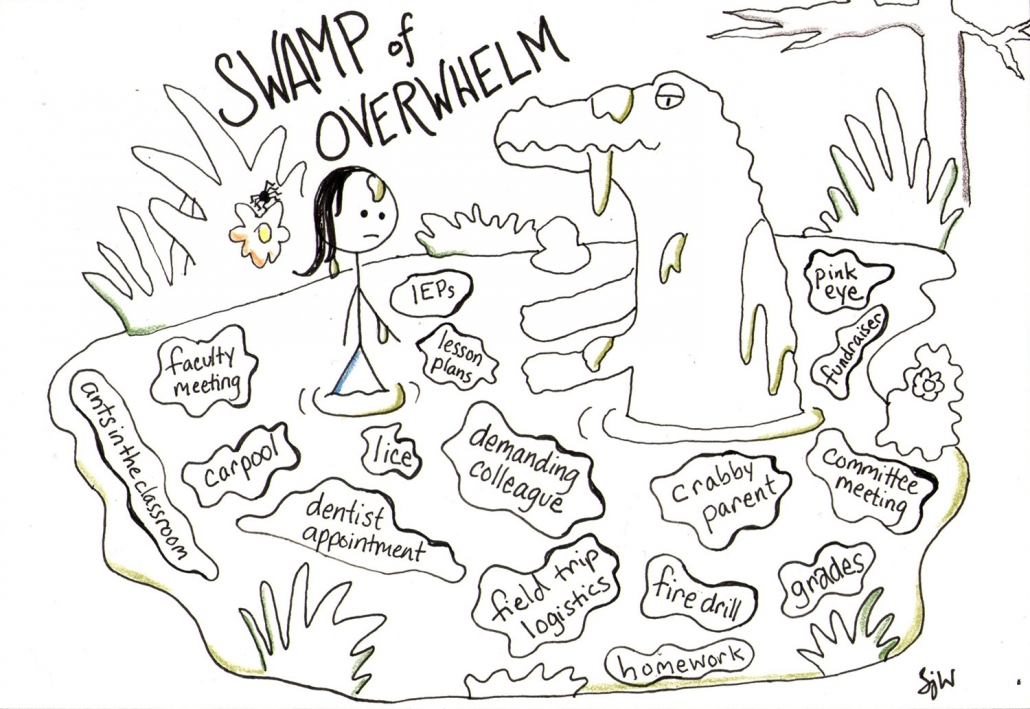 SWAMP of
OVERWHELM
IEPs
pink
eye
lesson
plans
fundraiser
faculty
meeting
ants in the classroom
carpool
lice
demanding
colleague
crabby
parent
committee
meeting
dentist
appointment
field trip
logistics
fire drill
grades
homework
SJW